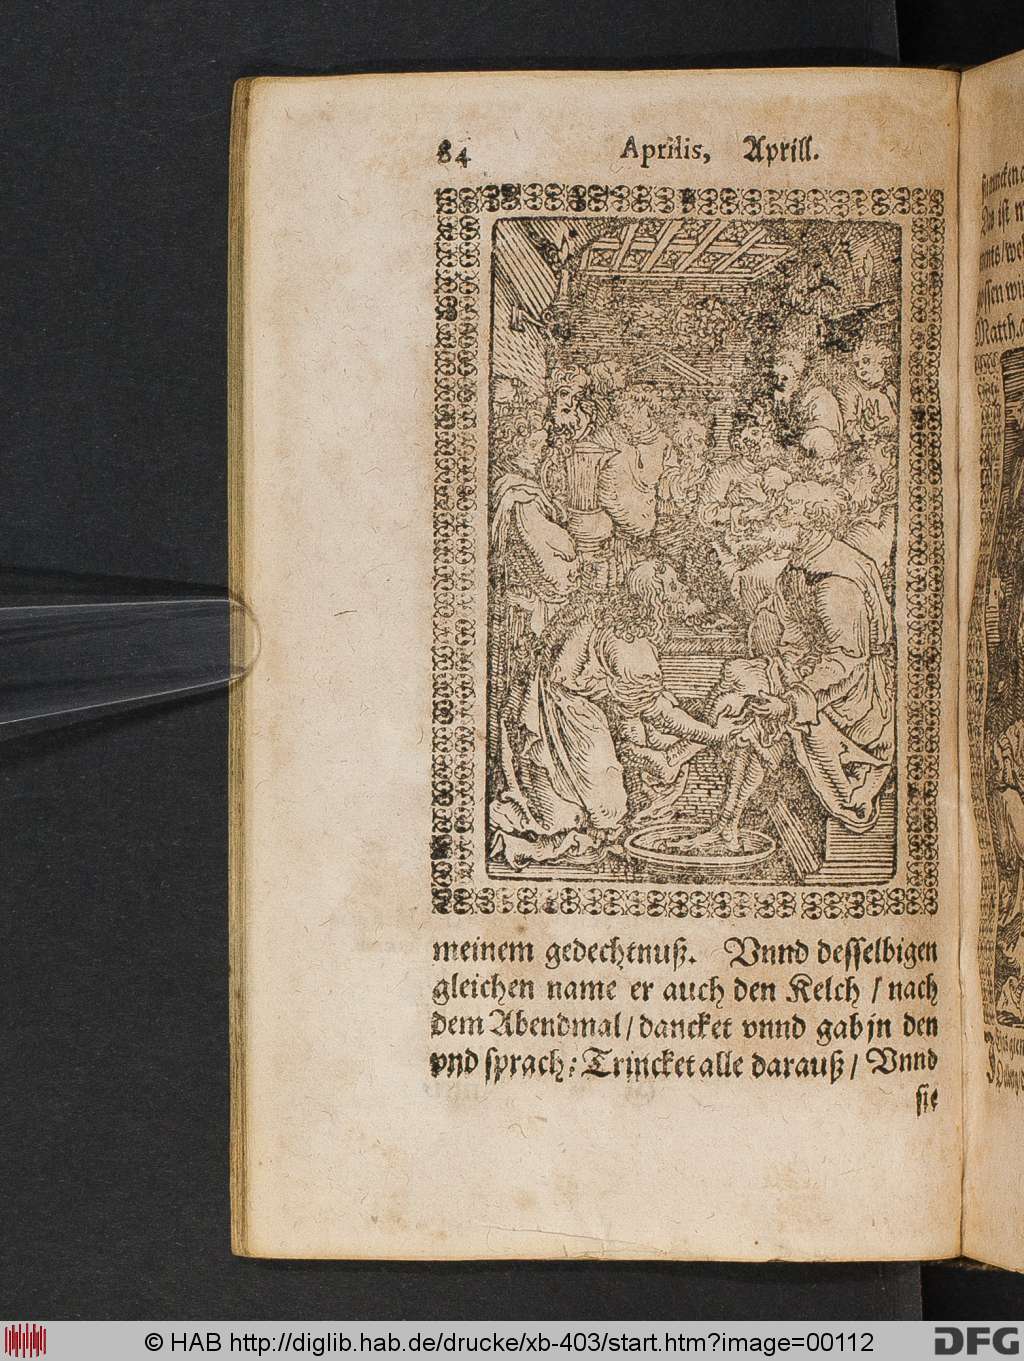 84 Aprilis, Aprill.
meinem gedechtnuß. Vnnd desselbigen
gleichen name er auch den Kelch / nach
dem Abendmal / dancket vnnd gab jn den
vnd sprach: Trincket alle darauß / Vnnd
sie
Matth.
© HAB http://diglib.hab.de/drucke/xb-403/start.htm?image=00112
DFG